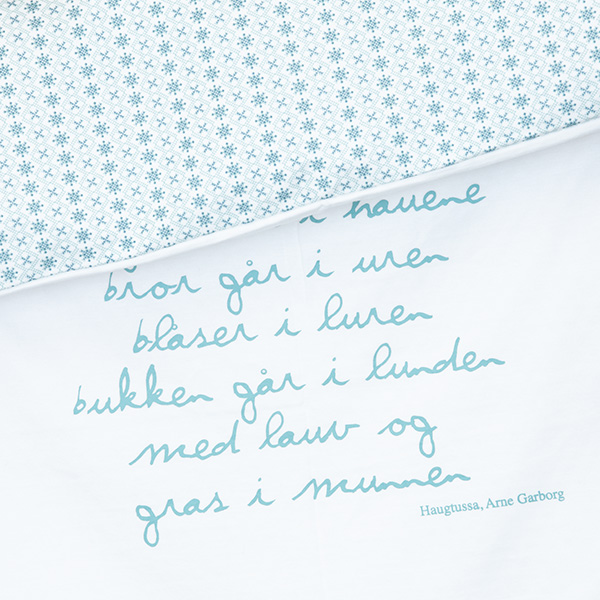 i hauene
bror går i uren
blåser i luren
bukken går i lunden
med lauv og
gras i munnen
Haugtussa, Arne Garborg